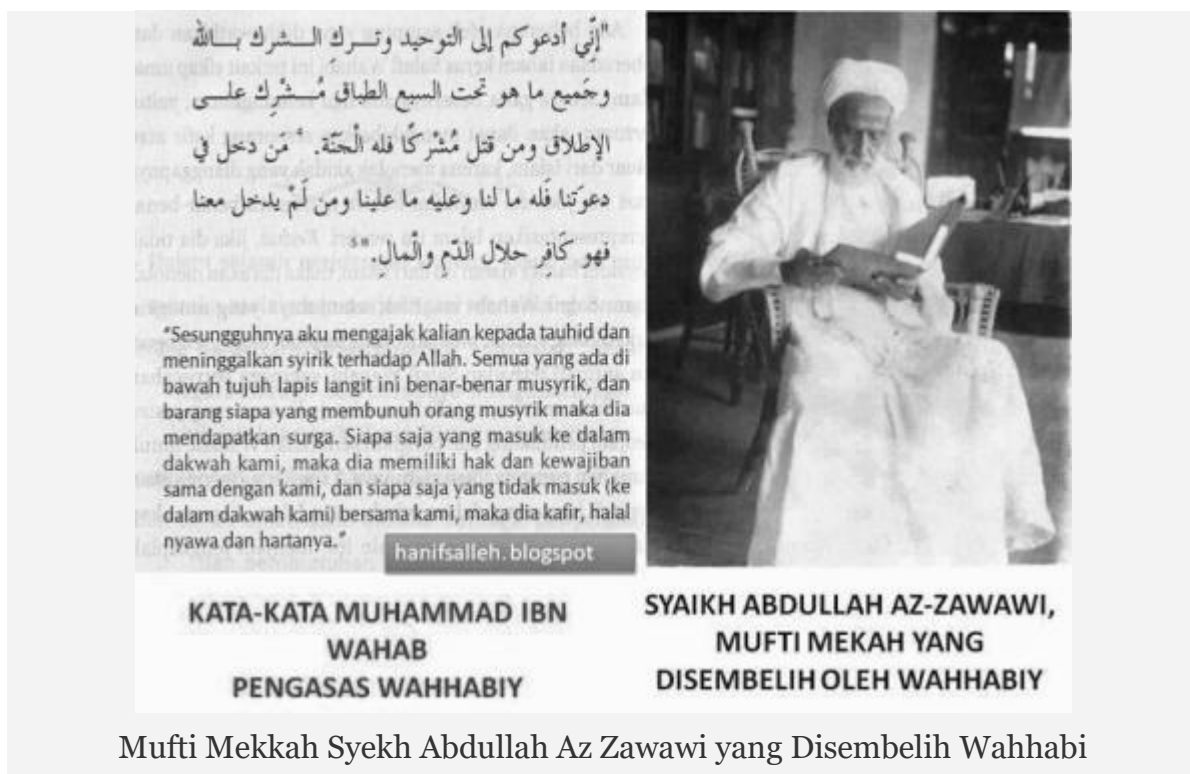 "إنّي أدعوكم إلى التوحيد وتـرك الـشرك بـالله
وجَميع ما هو تحت السبع الطباق مُـشْرِك علـى
الإطلاق ومن قتل مُشْركًا فله الْجنّة. مَن دخل في
دعوَتنا فَله ما لنا وعليه ما علينا ومن لَمْ يدخل معنا
فهو كَافر حلال الدّم والْمال."
"Sesungguhnya aku mengajak kalian kepada tauhid dan
meninggalkan syirik terhadap Allah. Semua yang ada di
bawah tujuh lapis langit ini benar-benar musyrik, dan
barang siapa yang membunuh orang musyrik maka dia
mendapatkan surga. Siapa saja yang masuk ke dalam
dakwah kami, maka dia memiliki hak dan kewajiban
sama dengan kami, dan siapa saja yang tidak masuk (ke
dalam dakwah kami) bersama kami, maka dia kafir, halal
nyawa dan hartanya."
hanifsalleh. blogspot
KATA-KATA MUHAMMAD IBN
WAHAB
PENGASAS WAHHABIY
SYAIKH ABDULLAH AZ-ZAWAWI,
MUFTI MEKAH YANG
DISEMBELIH OLEH WAHHABIY
Mufti Mekkah Syekh Abdullah Az Zawawi yang Disembelih Wahhabi